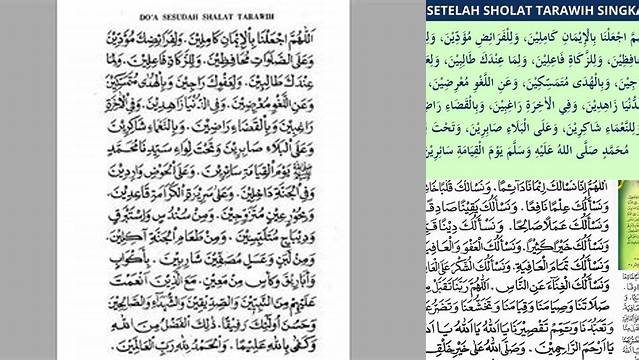 DO'A SESUDAH SHALAT TARAWIH
اَللّٰهُمَّ اجْعَلْنَا بِالْإِيْمَانِ كَامِلِيْنَ . وَلِفَرَائِضِكَ مُؤَدِّيْنَ
وَعَلَى الصَّلَوَاتِ مُحَافِظِيْنَ . وَلِلزَّكَاةِ فَاعِلِيْنَ . وَلِمَا
عِنْدَكَ طَالِبِيْنَ . وَلِعَفْوِكَ رَاجِيْنَ . وَبِالْهُدَى مُتَمَسِّكِيْنَ
وَعَنِ اللَّغْوِ مُعْرِضِيْنَ . وَفِى الدُّنْيَا زَاهِدِيْنَ . وَفِى الْآخِرَةِ
رَاغِبِيْنَ وَبِالْقَضَاءِ رَاضِيْنَ . وَبِالنَّعْمَاءِ شَاكِرِيْنَ
وَعَلَى الْبَلَاءِ صَابِرِيْنَ . وَتَحْتَ لِوَاءِ سَيِّدِنَا مُحَمَّدٍ
ﷺ يَوْمَ الْقِيَامَةِ سَائِرِيْنَ . وَعَلَى الْحَوْضِ وَارِدِيْنَ
وَفِى الْجَنَّةِ دَاخِلِيْنَ . وَعَلَى سَرِيْرَةِ الْكَرَامَةِ قَاعِدِيْنَ
وَبِحُوْرٍ عِيْنٍ مُتَزَوِّجِيْنَ . وَمِنْ سُنْدُسٍ وَاِسْتَبْرَقٍ
وَدِيْبَاجٍ مُتَلَبِّسِيْنَ . وَمِنْ طَعَامِ الْجَنَّةِ آكِلِيْنَ .
وَمِنْ لَبَنٍ وَعَسَلٍ مُصَفَّيْنِ شَارِبِيْنَ . بِأَكْوَابٍ
وَأَبَارِيْقَ وَكَأْسٍ مِنْ مَعِيْنٍ . مَعَ الَّذِيْنَ اَنْعَمْتَ
عَلَيْهِمْ مِنَ النَّبِيِّيْنَ وَالصِّدِّيْقِيْنَ وَالشُّهَدَاءِ وَالصَّالِحِيْنَ
وَحَسُنَ أُولٰئِكَ رَفِيْقًا . ذٰلِكَ الْفَضْلُ مِنَ اللهِ
وَكَفَى بِاللهِ عَلِيْمًا . وَالْحَمْدُ لِلّٰهِ رَبِّ الْعَالَمِيْنَ .
SETELAH SHOLAT TARAWIH SINGKA
اجْعَلْنَا بِالْإِيْمَانِ كَامِلِيْنَ، وَلِلْفَرَائِضِ مُؤَدِّيْنَ، وَلِ
وَلِلزَّكَاةِ فَاعِلِيْنَ، وَلِمَا عِنْدَكَ طَالِبِيْنَ، وَ
وَبِالْهُدَى مُتَمَسِّكِيْنَ، وَعَنِ اللَّغْوِ مُعْرِضِيْنَ،
زَاهِدِيْنَ، وَفِي الْآخِرَةِ رَاغِبِيْنَ، وَبِالْقَضَاءِ
شَاكِرِيْنَ، وَعَلَى الْبَلَاءِ صَابِرِيْنَ، وَتَحْتَ
مُحَمَّدٍ صَلَّى اللهُ عَلَيْهِ وَسَلَّمَ يَوْمَ الْقِيَامَةِ سَائِرِيْنَ
اَللّٰهُمَّ اِنَّا نَسْأَلُكَ اِيْمَانًا دَائِمًا . وَنَسْأَلُكَ قَلْبًا
وَنَسْأَلُكَ عِلْمًا نَافِعًا . وَنَسْأَلُكَ يَقِيْنًا صَادِقًا
وَنَسْأَلُكَ عَمَلًا صَالِحًا . وَنَسْأَلُكَ دِيْنًا
وَنَسْأَلُكَ خَيْرًا كَثِيْرًا . وَنَسْأَلُكَ الْعَفْوَ وَالْعَافِيَةَ
وَنَسْأَلُكَ تَمَامَ الْعَافِيَةِ . وَنَسْأَلُكَ الشُّكْرَ عَلَى
وَنَسْأَلُكَ الْغِنَاءَ عَنِ النَّاسِ . اَللّٰهُمَّ رَبَّنَا تَقَبَّلْ
صَلَاتَنَا وَصِيَامَنَا وَقِيَامَنَا وَتَخَشُّعَنَا
وَتَعَبُّدَنَا وَتَمِّمْ تَقْصِيْرَنَا يَا اَللهُ يَا اَللهُ
يَا اَرْحَمَ الرَّاحِمِيْنَ . وَصَلَّى اللهُ عَلَى خَيْرِ خَلْقِهِ